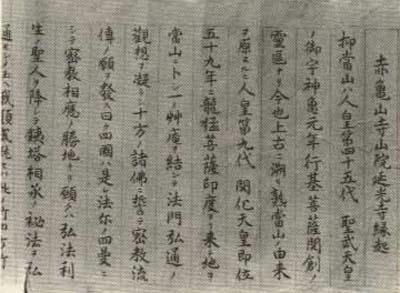 赤亀山寺山院延光寺縁起
抑當山ハ人皇第四十五代 聖武天皇
ノ御宇神亀元年行基菩薩開創ノ
靈區ナリ今也上古ニ溯ノ熟當山ノ由来
ヲ原スルニ人皇第九代 開化天皇即位
五十九年ニ龍猛菩薩印度ヨリ来ノ地ヲ
當山ニトシ一艸庵ヲ結シテ法門弘通ノ
觀想ヲ凝シ十方ノ諸佛ニ誓テ密教流
傳ノ願ヲ發ス曰ク四國ハ是レ法尓ノ四曼ニ
シテ密教相應ノ勝地ナリ願クハ弘法利
生ノ聖人ヲ降シテ鉄塔相承ノ秘法ヲ弘